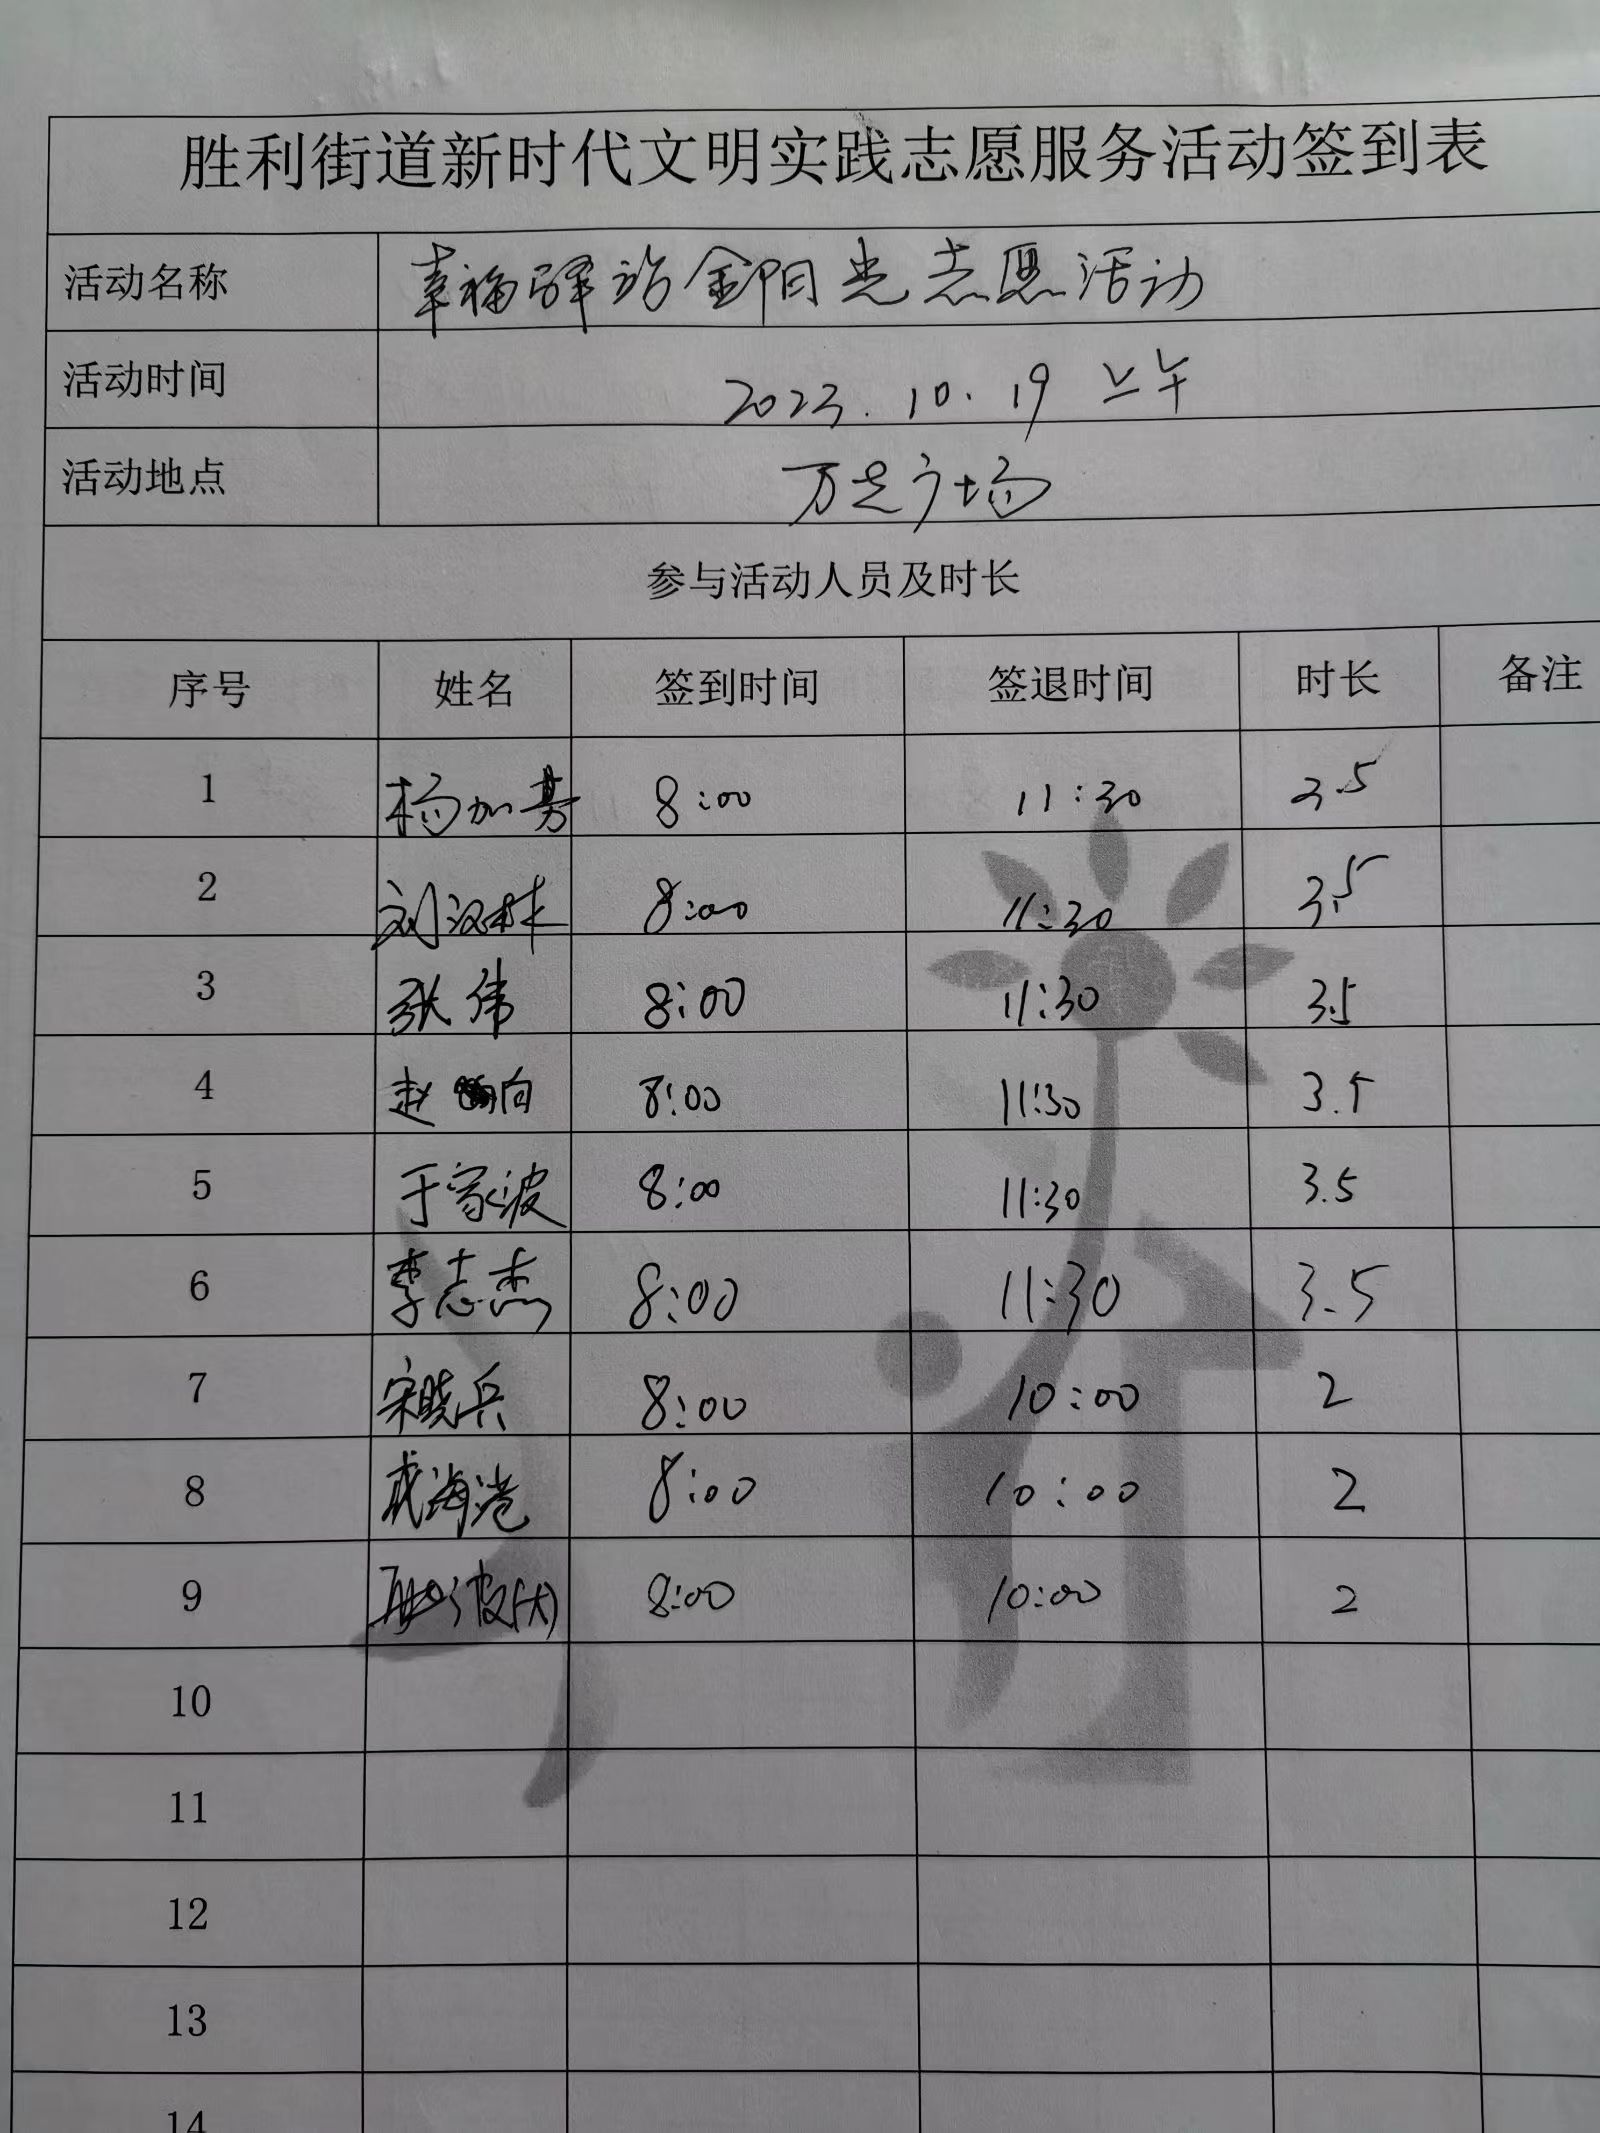 胜利街道新时代文明实践志愿服务活动签到表
活动名称 幸福驿站金阳光志愿活动
活动时间 2023.10.19 上午
活动地点 万达广场
参与活动人员及时长
序号 姓名 签到时间 签退时间 时长 备注
1 杨加 8:00 11:30 3.5
2 刘汉林 8:00 11:30 3.5
3 张伟 8:00 11:30 3.5
4 赵 向 8:00 11:30 3.5
5 于家波 8:00 11:30 3.5
6 李志杰 8:00 11:30 3.5
7 宋晓兵 8:00 10:00 2
8 成海港 8:00 10:00 2
9 波(大) 8:00 10:00 2
10
11
12
13
14